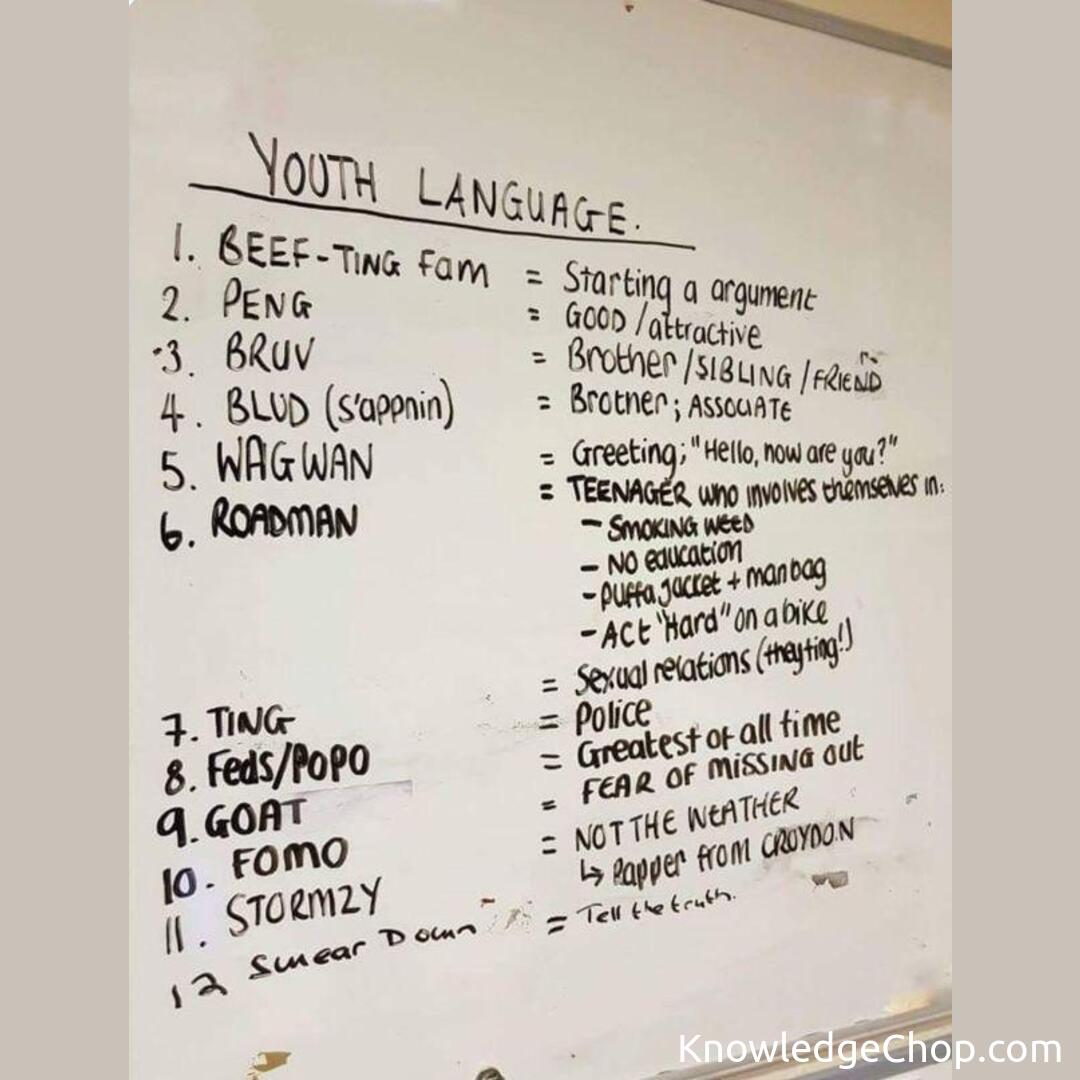 YOUTH LANGUAGE.
1. BEEF-TING Fam = Starting a argument
2. PENG = GOOD/attractive
3. BRUV = Brother/SIBLING/FRIEND
4. BLUD (s'appnin) = Brother; ASSOCIATE
5. WAGWAN = Greeting; "Hello, how are you?"
6. ROADMAN = TEENAGER who involves themselves in:
- SMOKING WEED
- NO education
- puffa jacket + man bag
- ACt "Hard" on a bike
7. TING = Sexual relations (they ting!)
8. Feds/POPO = Police
9. GOAT = Greatest of all time
10. FOMO = FEAR OF MISSING OUt
11. STORMZY = NOT THE WEATHER
↳ Rapper from CROYDON
12 Swear Down = Tell the truth.
KnowledgeChop.com